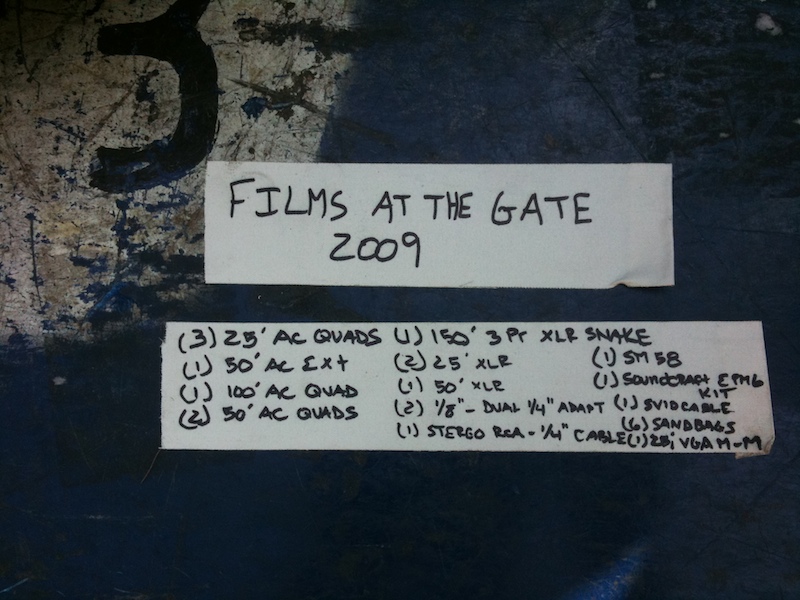 3
FILMS AT THE GATE
2009
(3) 25' AC QUADS
(1) 50' AC Ext
(1) 100' AC QUAD
(2) 50' AC QUADS
(1) 150' 3 Pr XLR SNAKE
(2) 25' XLR
(1) 50' XLR
(2) 1/8" - DUAL 1/4" ADAPT
(1) STEREO RCA - 1/4" CABLE
(1) SM 58
(1) SOUNDCRAFT EPM6
KIT
(1) SVID CABLE
(6) SANDBAGS
(1) 25' VGA M-M